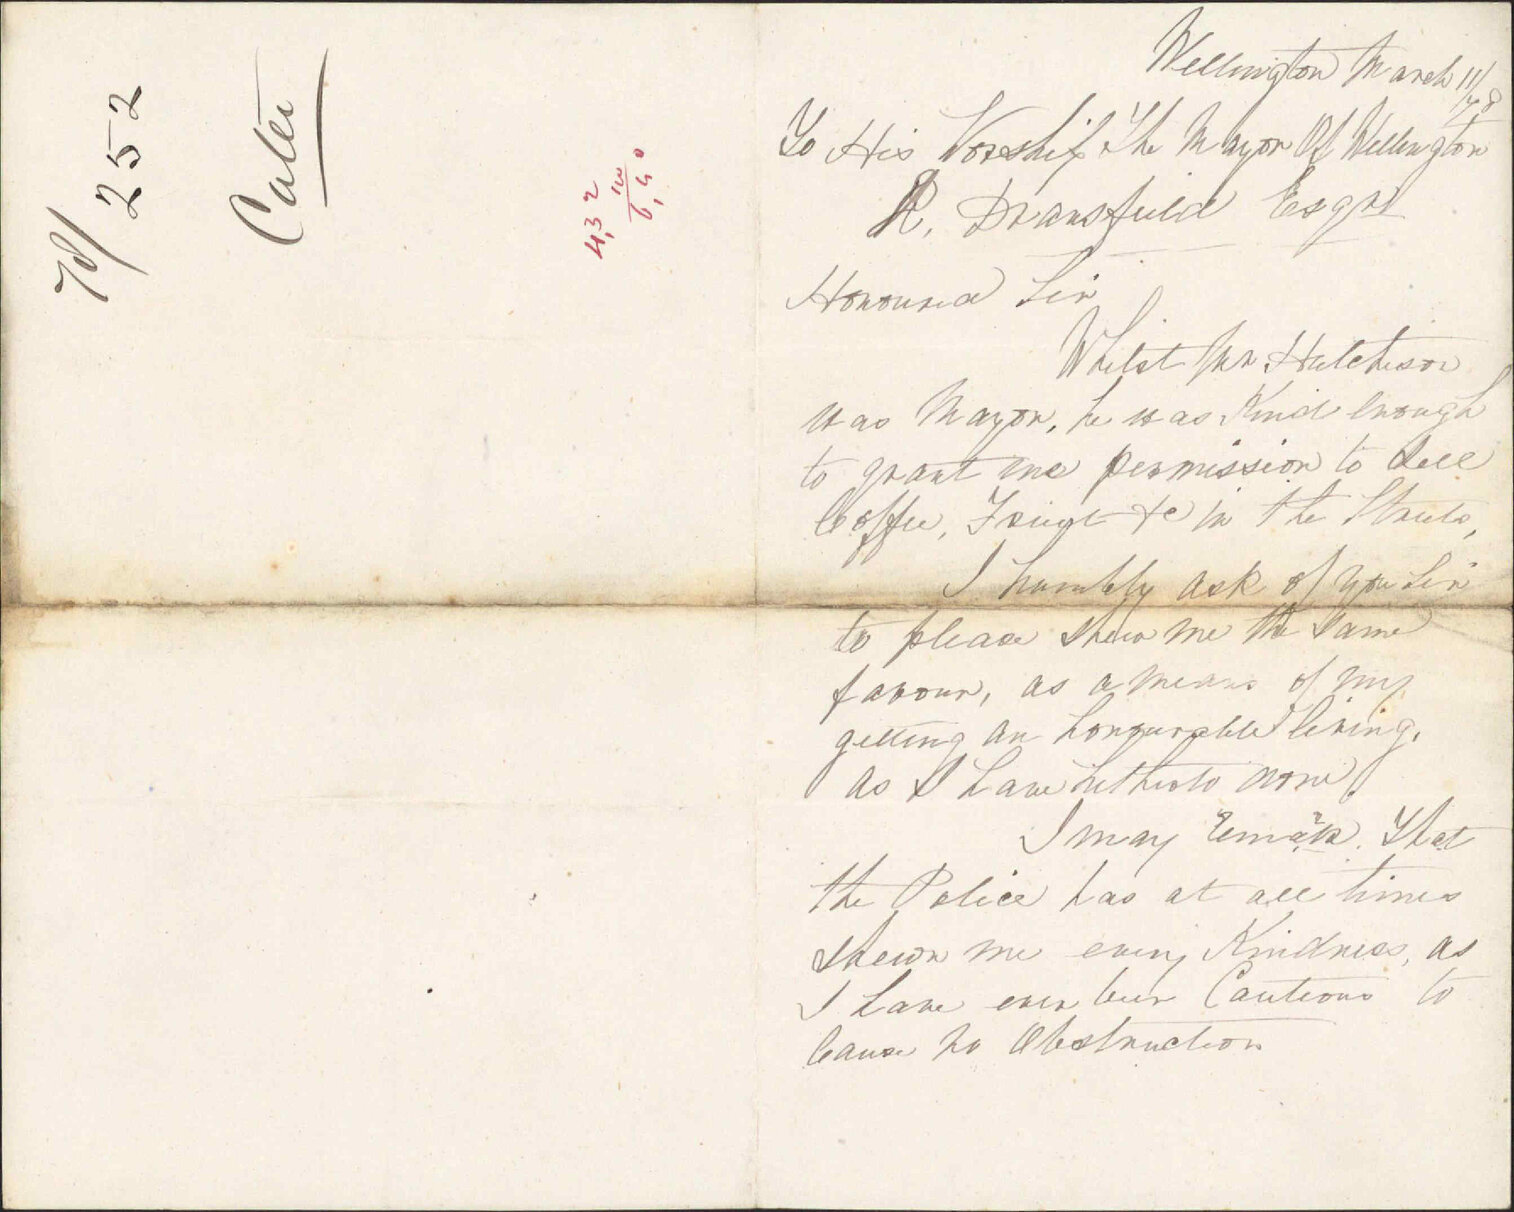 78/252
Cater
Wellington March 11/78
To His Worship The Mayor Of Wellington
R. Dransfield Esqr
Honoured Sir
Whilst Mr Hutchison
was Mayor, he was Kind enough
to grant me permission to Sell
Coffee, Fruit &c in the Streets,
I humbly ask of you Sir
to please shew me the same
favour, as a means of my
getting an honourable living,
As I have hitherto done,
I may remark. That
the Police has at all times
shewn me every Kindness, as
I have ever been Cautious to
Cause no Obstruction